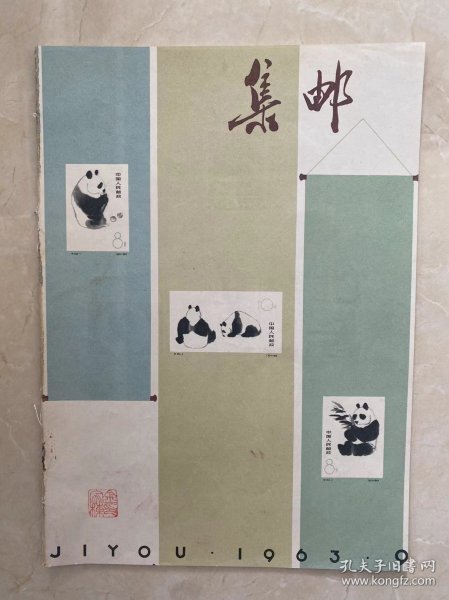 集邮
中国人民邮政
8
中国人民邮政
10
中国人民邮政
8
JIYOU·1963·9
孔夫子旧书网
www.kongfz.com